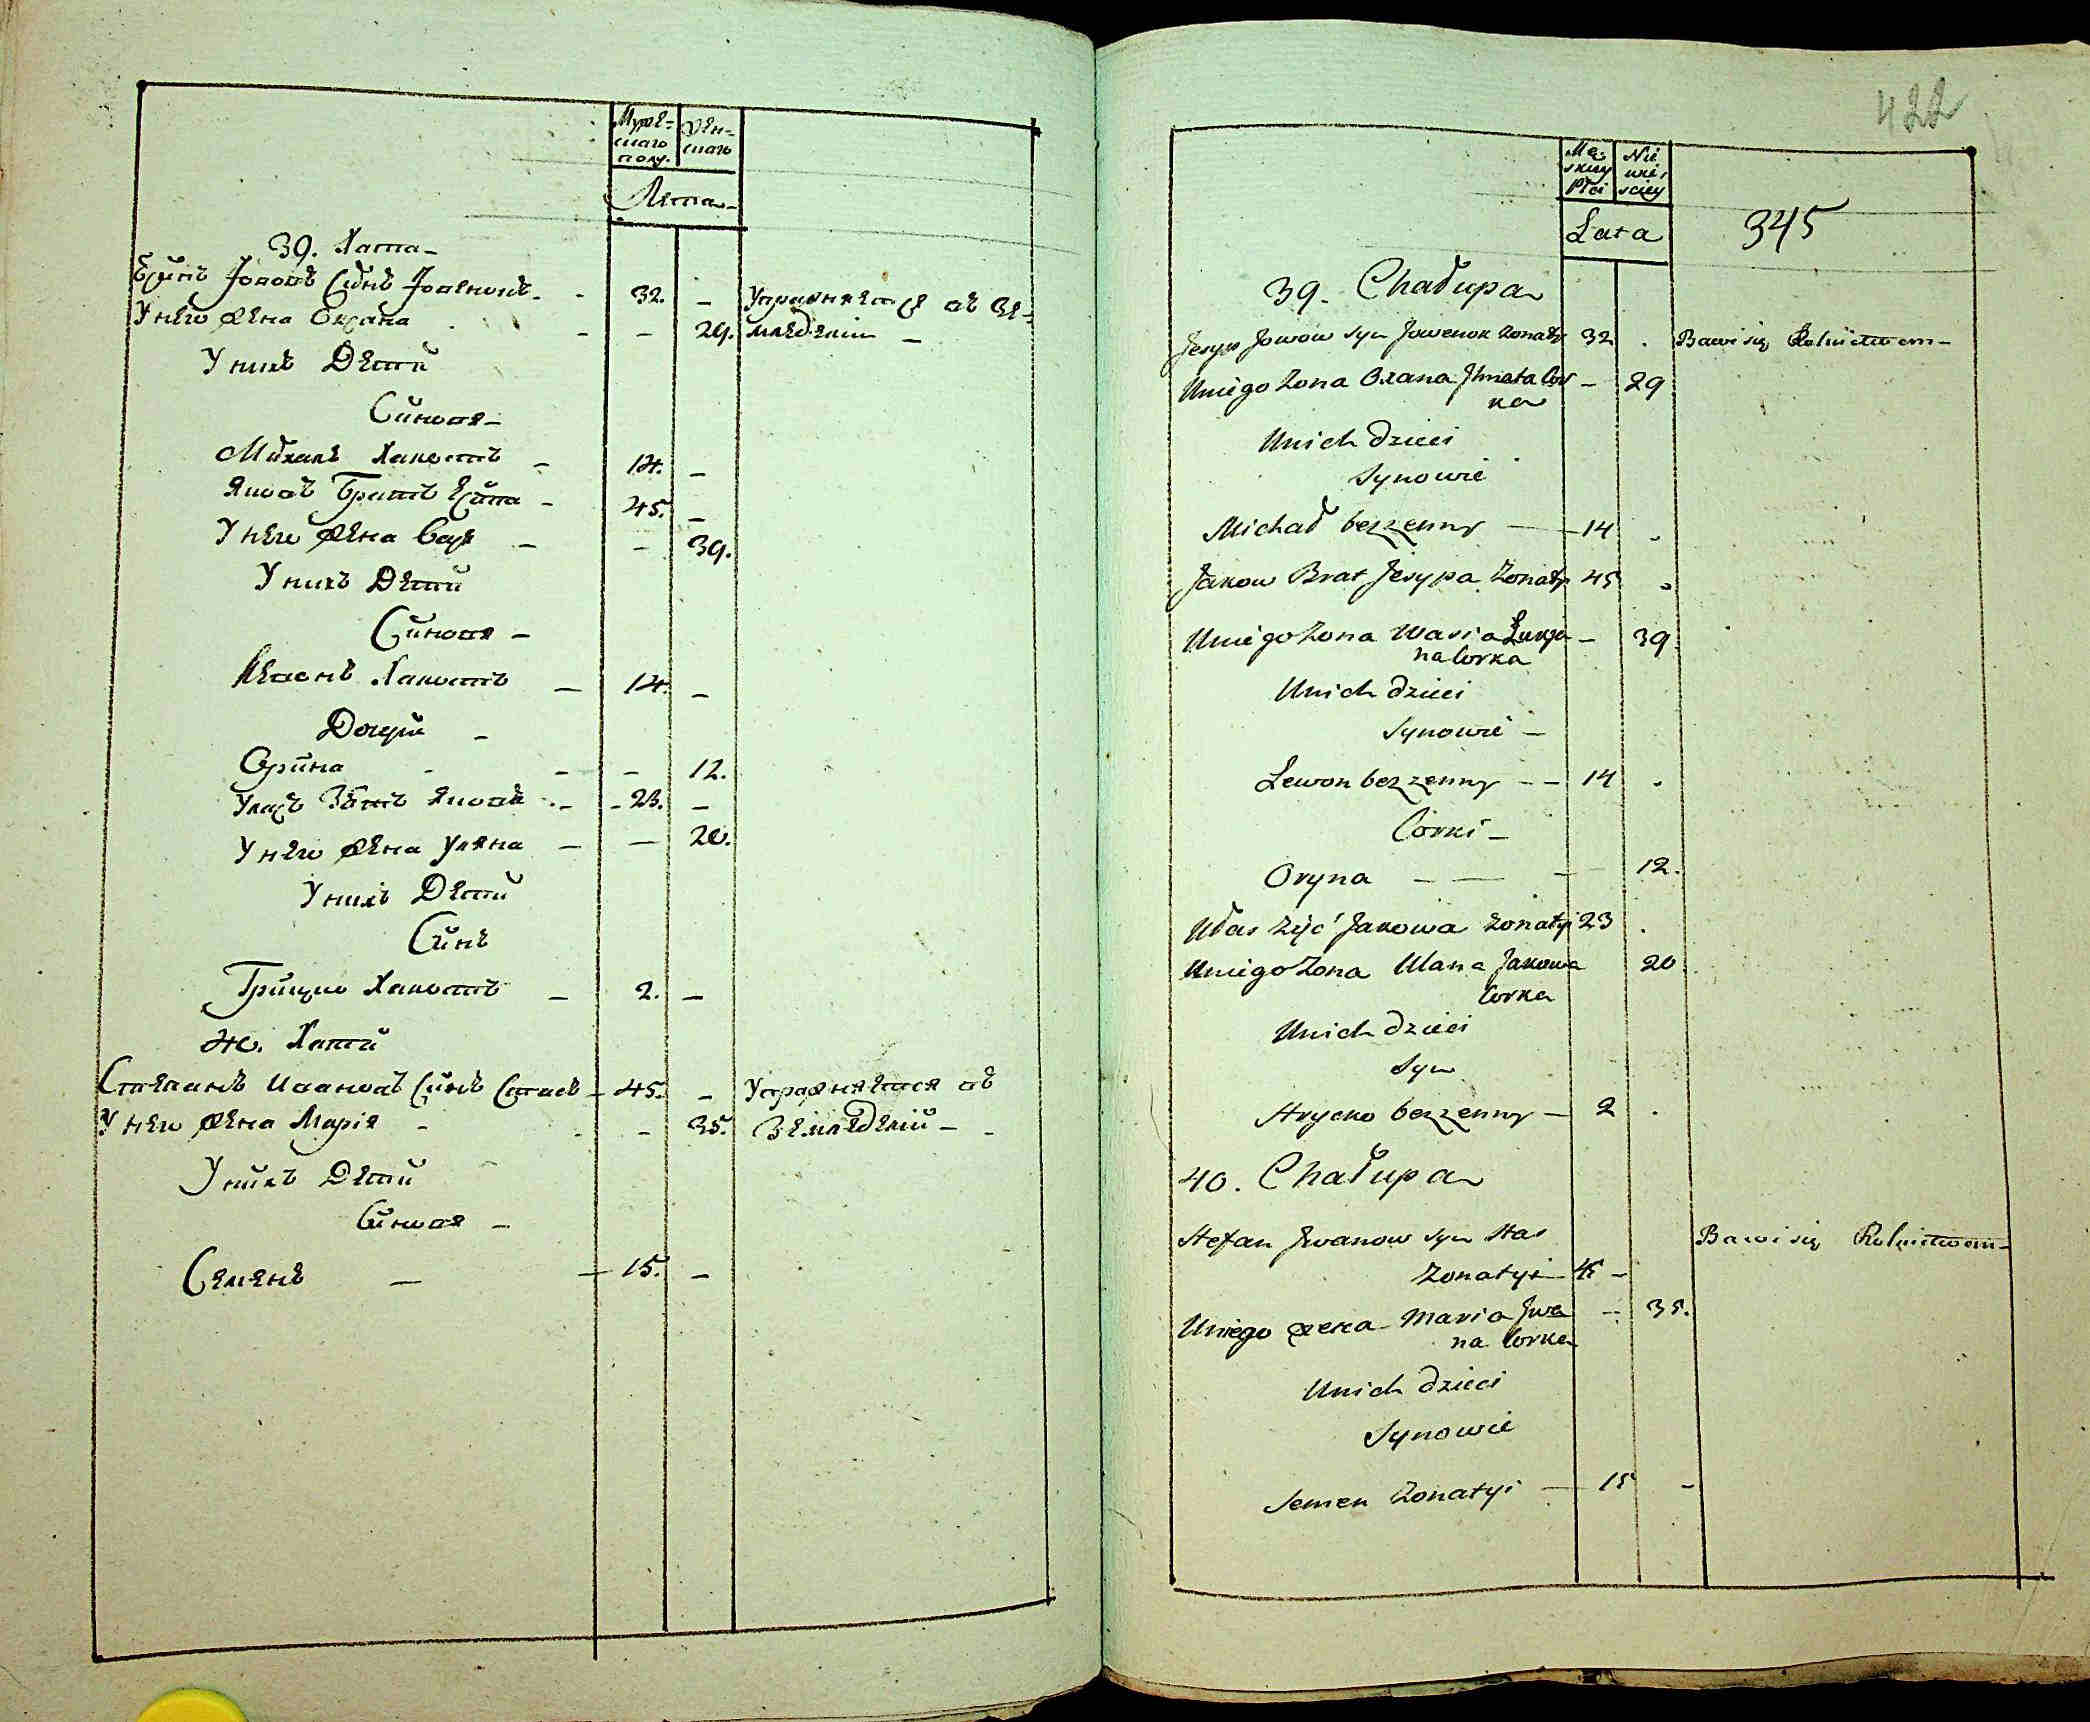 Мужес-
скаго
полу.
Жен-
скаго
Лета
39. Хата
Есипъ Іововъ Синъ Іовенокъ - 32. - Упражняется въ Зе-
У него жена Оксана - - 29. мледелии -
У нихъ Дети
Синовя -
Михаилъ Холостъ - 14. -
Яковъ Братъ Есипа - 45. -
У него жена Вася - - 39.
У нихъ Дети
Синовя -
Левонъ Холостъ - 14. -
Дочери -
Орина - - - 12.
Уласъ Зять Якова - 23. -
У него жена Уляна - - 20.
У нихъ Дети
Синъ
Грицко Холостъ - 2. -
40. Хати
Стефанъ Ивановъ Синъ Стасъ - 45. - Упражняется въ
У него жена Марія - - 35. Земледелій -
У нихъ Дети
Синовя -
Семенъ - - 15. -
422
Mę-
skiey
płci
Nie
wie-
sciey
Lata
345
39. Chałupa
Jesyp Jowow syn Jowenok żonaty 32 . Bawi się Rolnictwem -
Uniego Zona Oxana Jhnata Cor - 29
ka
Unich dzieci
Synowie
Michał bezzenny - 14 -
Jakow Brat Jesypa Zonaty 45 -
Uniego Zona Wasia Łukja - 39
na Corka
Unich dzieci
Synowie -
Lewon bezzenny - - 14 -
Corki -
Oryna - - - 12.
Ułas Zięć Jakowa Zonaty 23 .
Uniego Zona Ulana Jakowa 20
Corka
Unich dzieci
Syn
Hrycko bezzenny - 2 .
40. Chałupa
Stefan Jwanow syn Stas Bawi się Rolnictwem -
Zonatyi - 45 -
Uniego жена Maria Jwa - 35.
na Corka
Unich dzieci
Synowie
Semen Zonatyi - 15 -